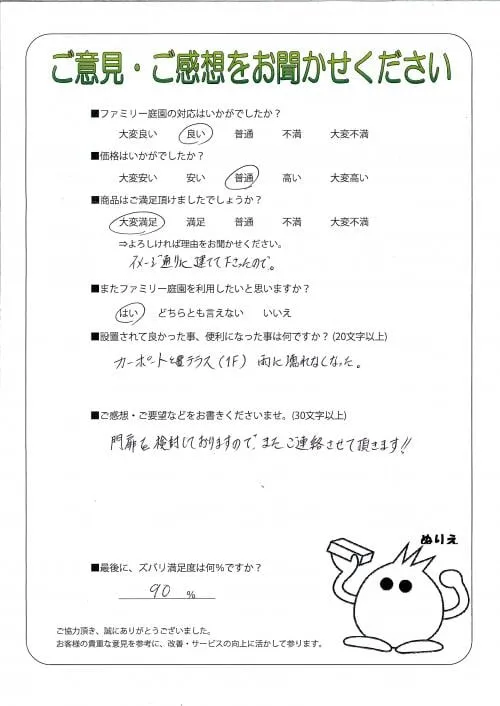 ご意見・ご感想をお聞かせください
■ファミリー庭園の対応はいかがでしたか？
大変良い 良い 普通 不満 大変不満
■価格はいかがでしたか？
大変安い 安い 普通 高い 大変高い
■商品はご満足頂けましたでしょうか？
大変満足 満足 普通 不満 大変不満
⇒よろしければ理由をお聞かせください。
イメージ通りに建てて下さったので。
■またファミリー庭園を利用したいと思いますか？
はい どちらとも言えない いいえ
■設置されて良かった事、便利になった事は何ですか？(20文字以上)
カーポートと テラス (1F) 雨に濡れなくなった。
■ご感想・ご要望などをお書きくださいませ。(30文字以上)
門扉を検討しておりますので、またご連絡させて頂きます!!
ぬりえ
■最後に、ズバリ満足度は何％ですか？
90 %
ご協力頂き、誠にありがとうございました。
お客様の貴重な意見を参考に、改善・サービスの向上に活かして参ります。